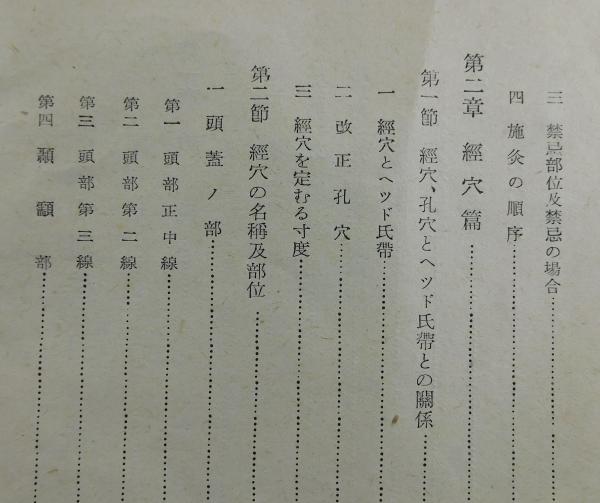 三 禁忌部位及禁忌の場合
四 施灸の順序
第二章 經穴篇
第一節 經穴、孔穴とヘツド氏帶との關係
一 經穴とヘツド氏帶
二 改正孔穴
三 經穴を定むる寸度
第二節 經穴の名稱及部位
一 頭蓋ノ部
第一 頭部正中線
第二 頭部第二線
第三 頭部第三線
第四 顳顬部